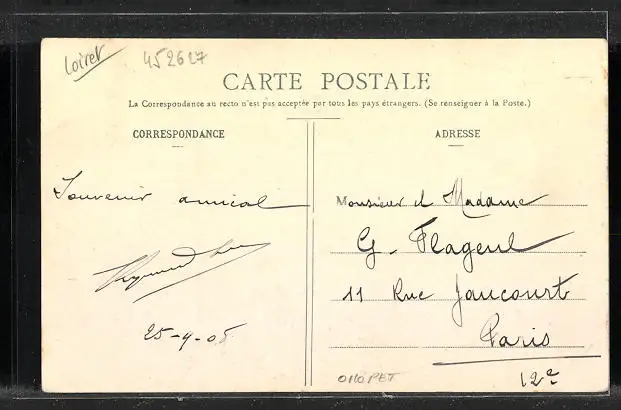 Loiret
452627
CARTE POSTALE
La Correspondance au recto n'est pas acceptée par tous les pays étrangers. (Se renseigner à la Poste.)
CORRESPONDANCE
Souvenir amical
25-9-05
ADRESSE
Monsieur et Madame
G. Flageul
11 Rue Jaucourt
Paris
12e
OMOPET